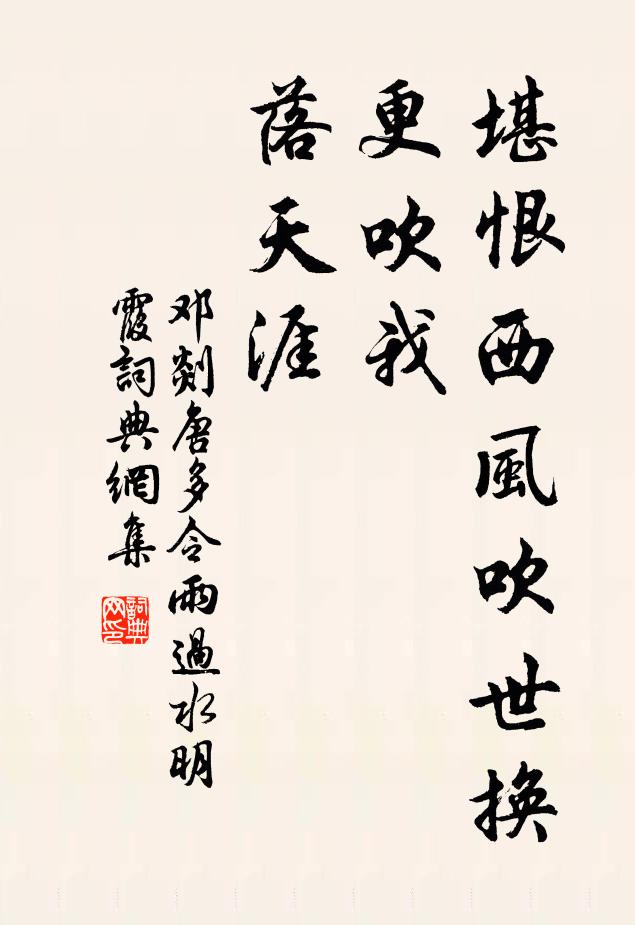 堪恨西風吹世換
更吹我
落天涯
邓剡唐多令雨過水明
霞詞典網集
詞典网印